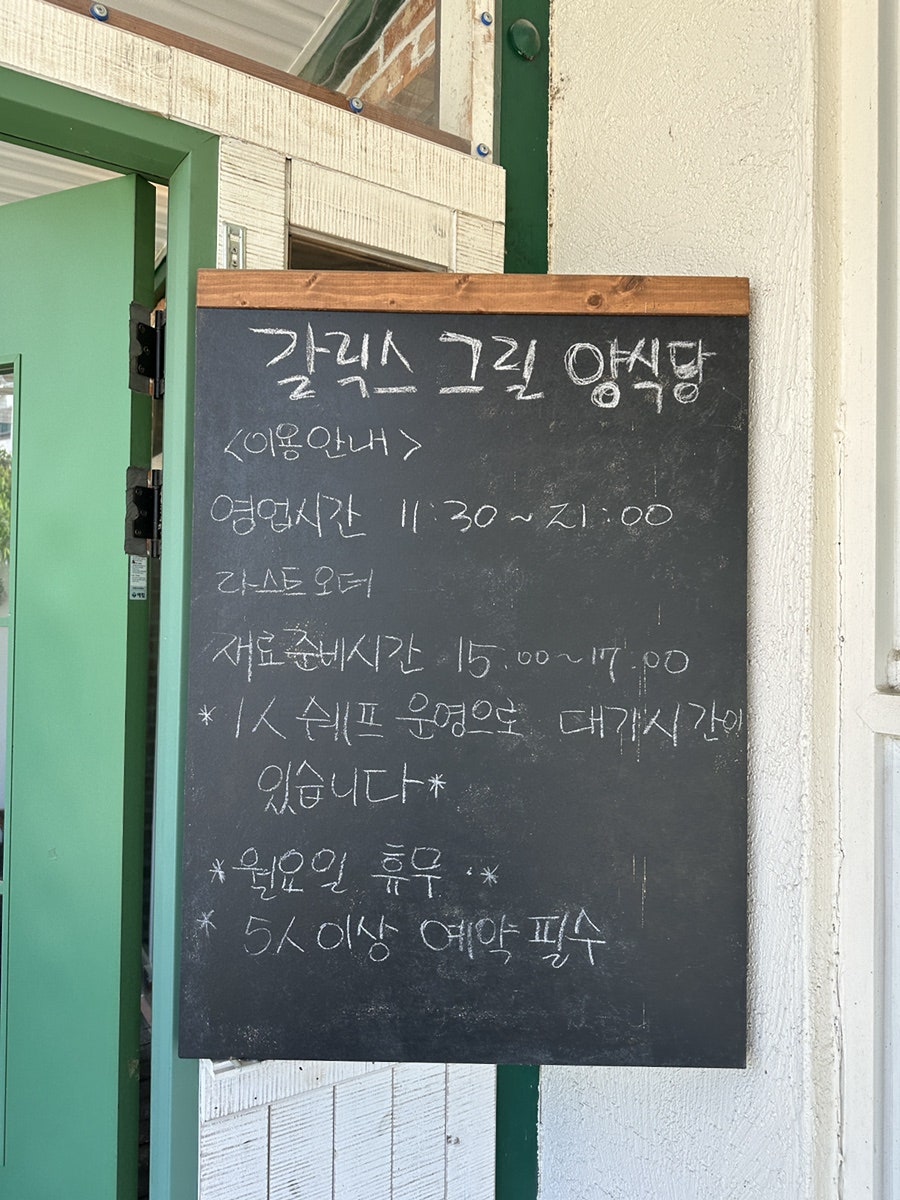 갈릭스 그릴 양식당
<이용안내>
영업시간 11:30~21:00
라스트오더
재료준비시간 15:00~17:00
*1人 쉐프 운영으로 대개시간이
있습니다*
*월요일 휴무*
*5人이상 예약필수